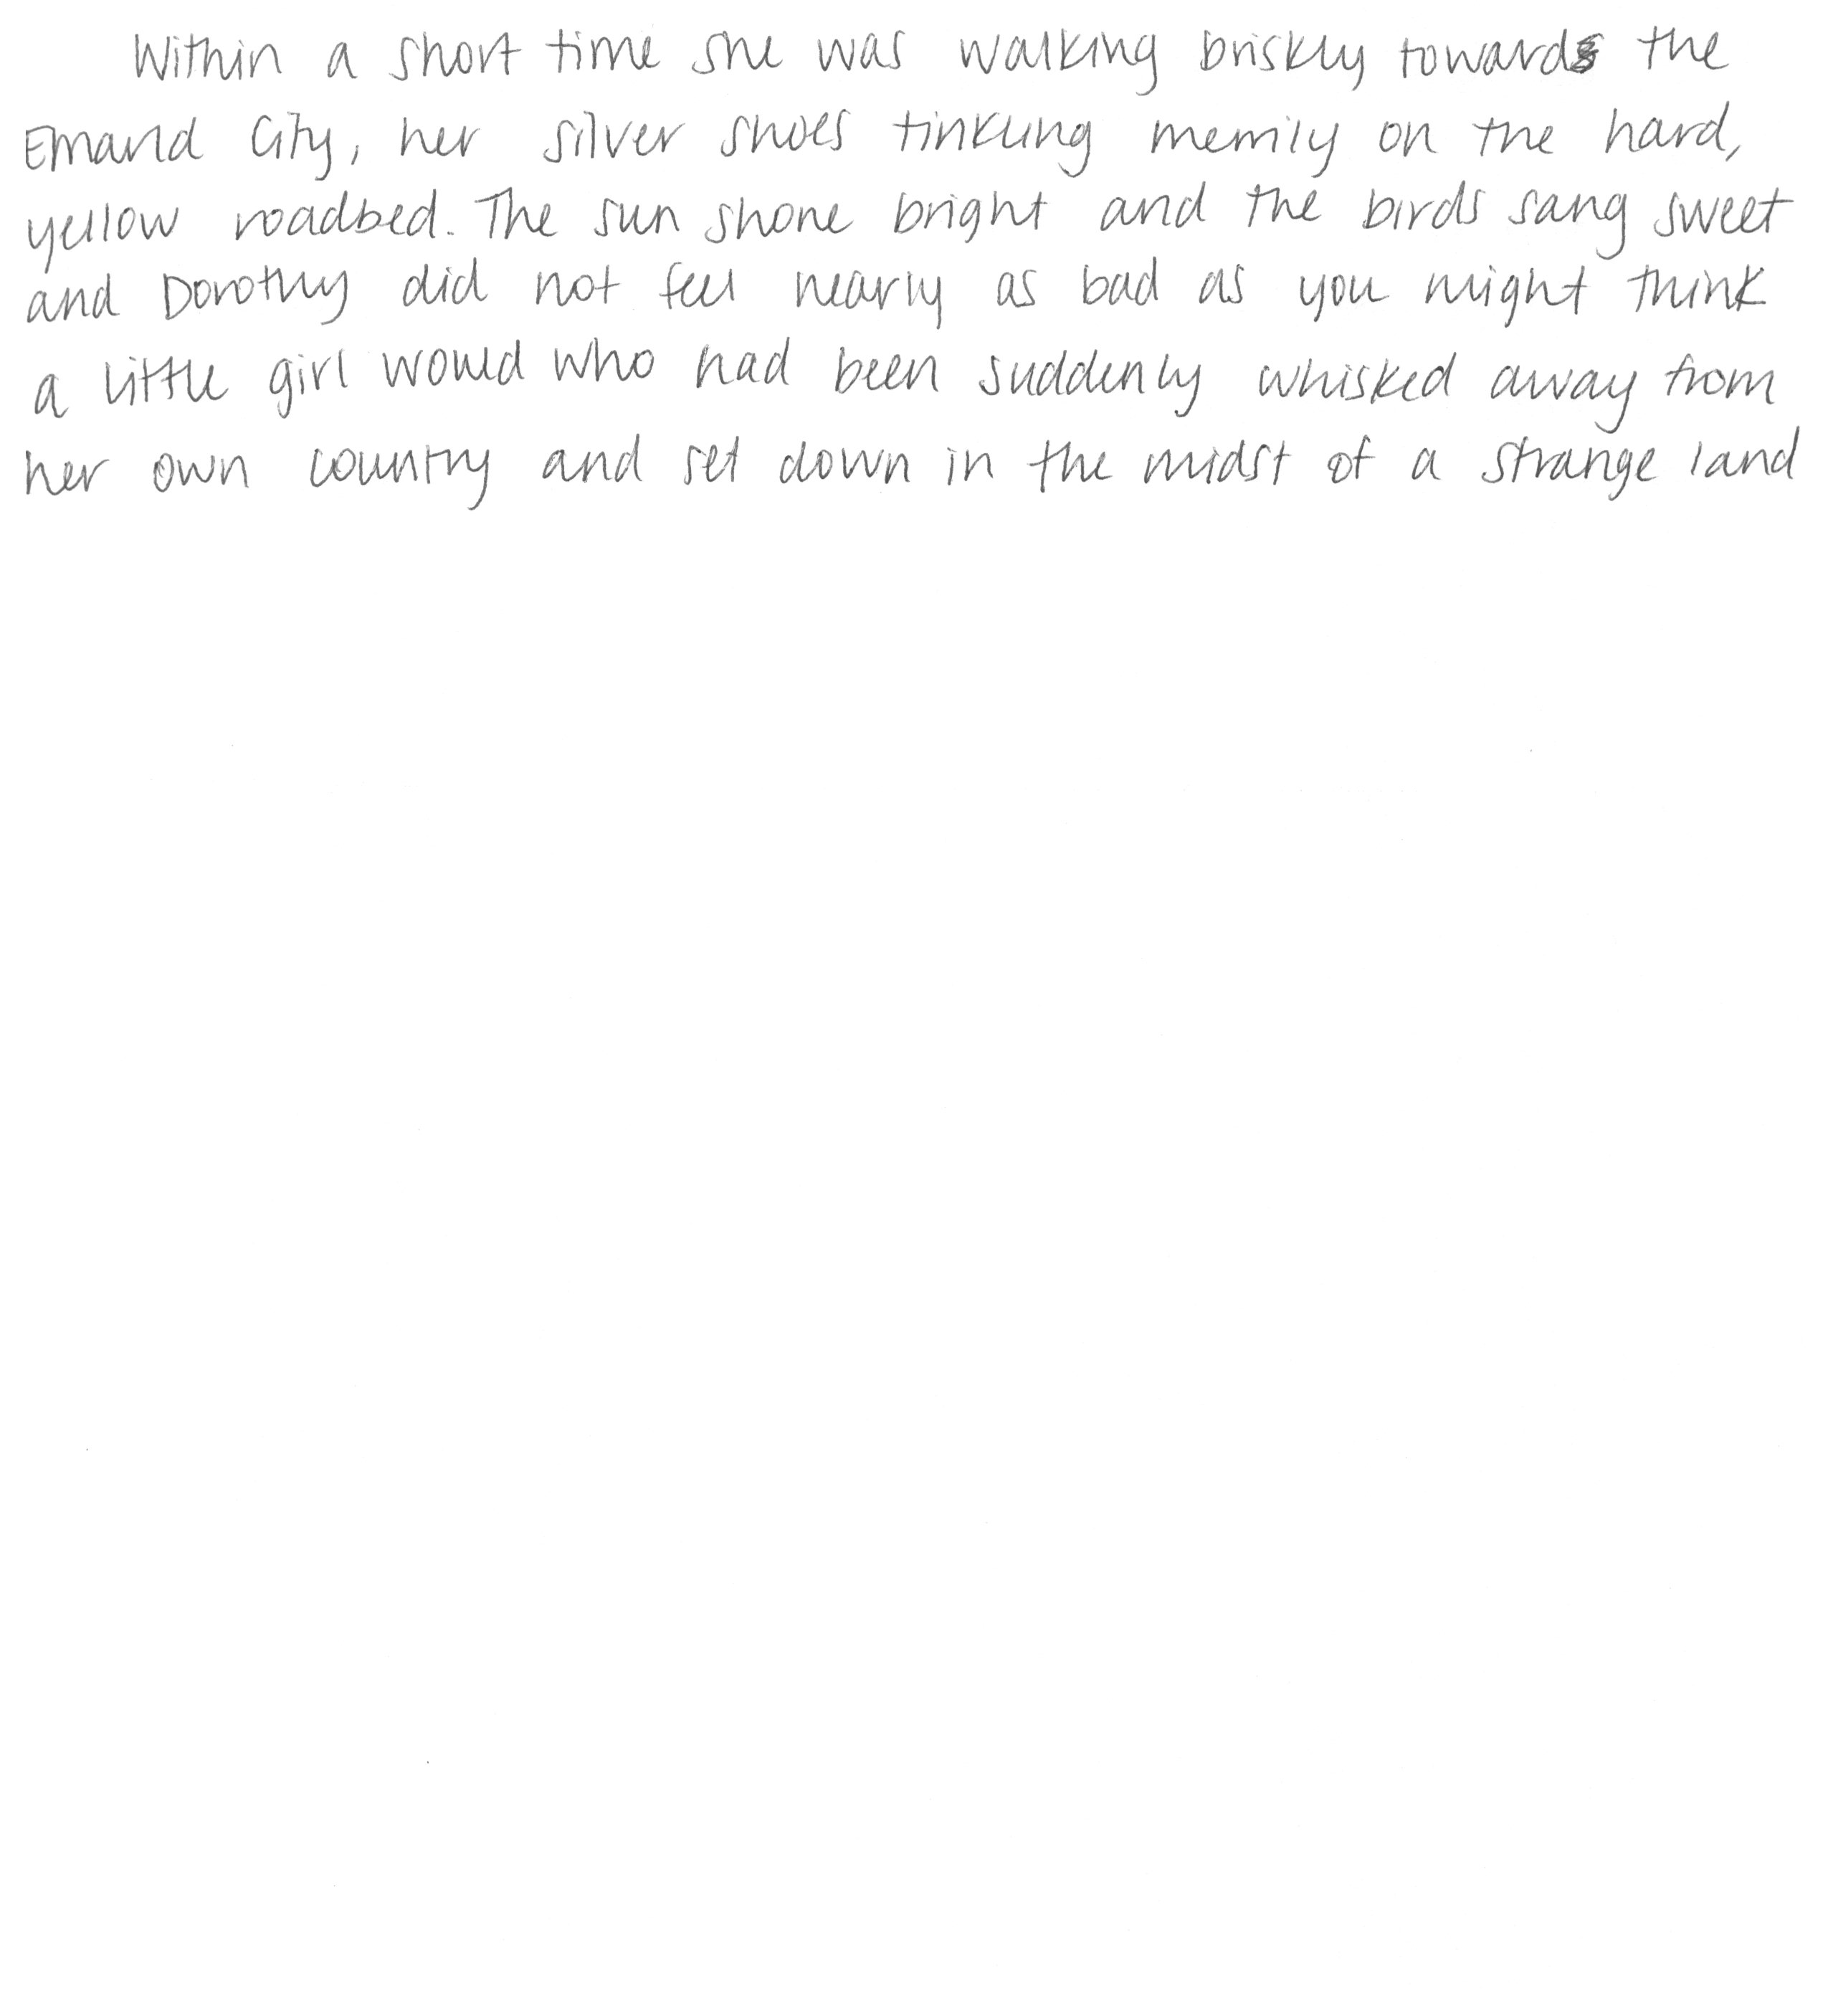 Within a short time she was walking briskly towards the
Emarld City, her silver shoes tinkling merrily on the hard,
yellow roadbed. The sun shone bright and the birds sang sweet
and Dorothy did not feel nearly as bad as you might think
a little girl would who had been suddenly whisked away from
her own country and set down in the midst of a strange land